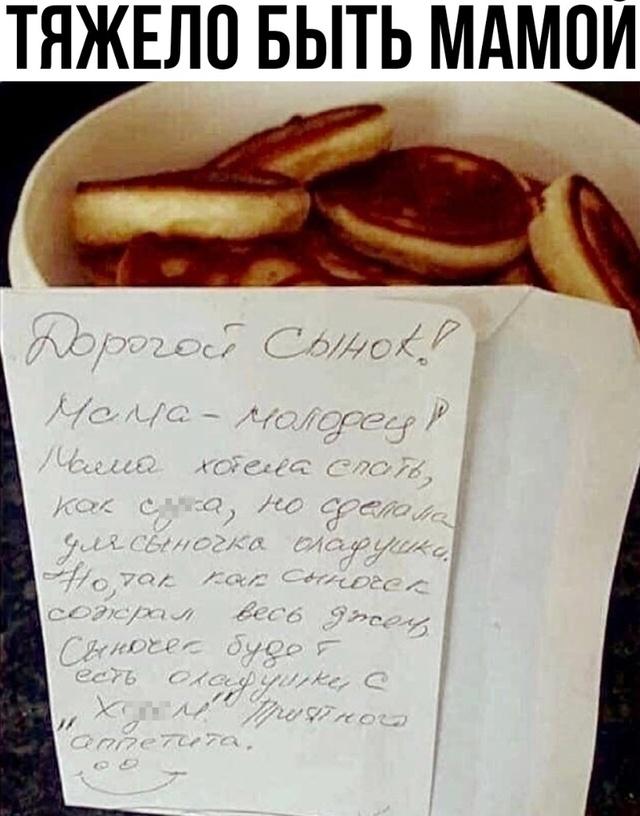 ТЯЖЕЛО БЫТЬ МАМОЙ
Дорогой Сынок!
Мама - молодец!
Мама хотела спать,
как с а, но сделала
для сыночка оладушки.
Но, так как сыночек
сожрал весь джем,
Сыночек будет
есть оладушки с
„Х м" Приятного
аппетита.